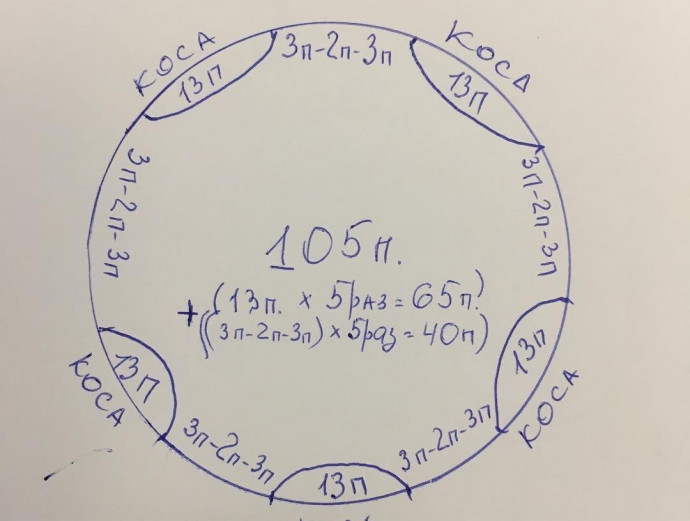 КОСА
13п
3п-2п-3п
КОСА
13п
3п-2п-3п
3п-2п-3п
105п.
(13п. х 5раз = 65п.)
+
((3п-2п-3п) х 5раз = 40п)
13п
КОСА
13п
КОСА
3п-2п-3п
3п-2п-3п
13п